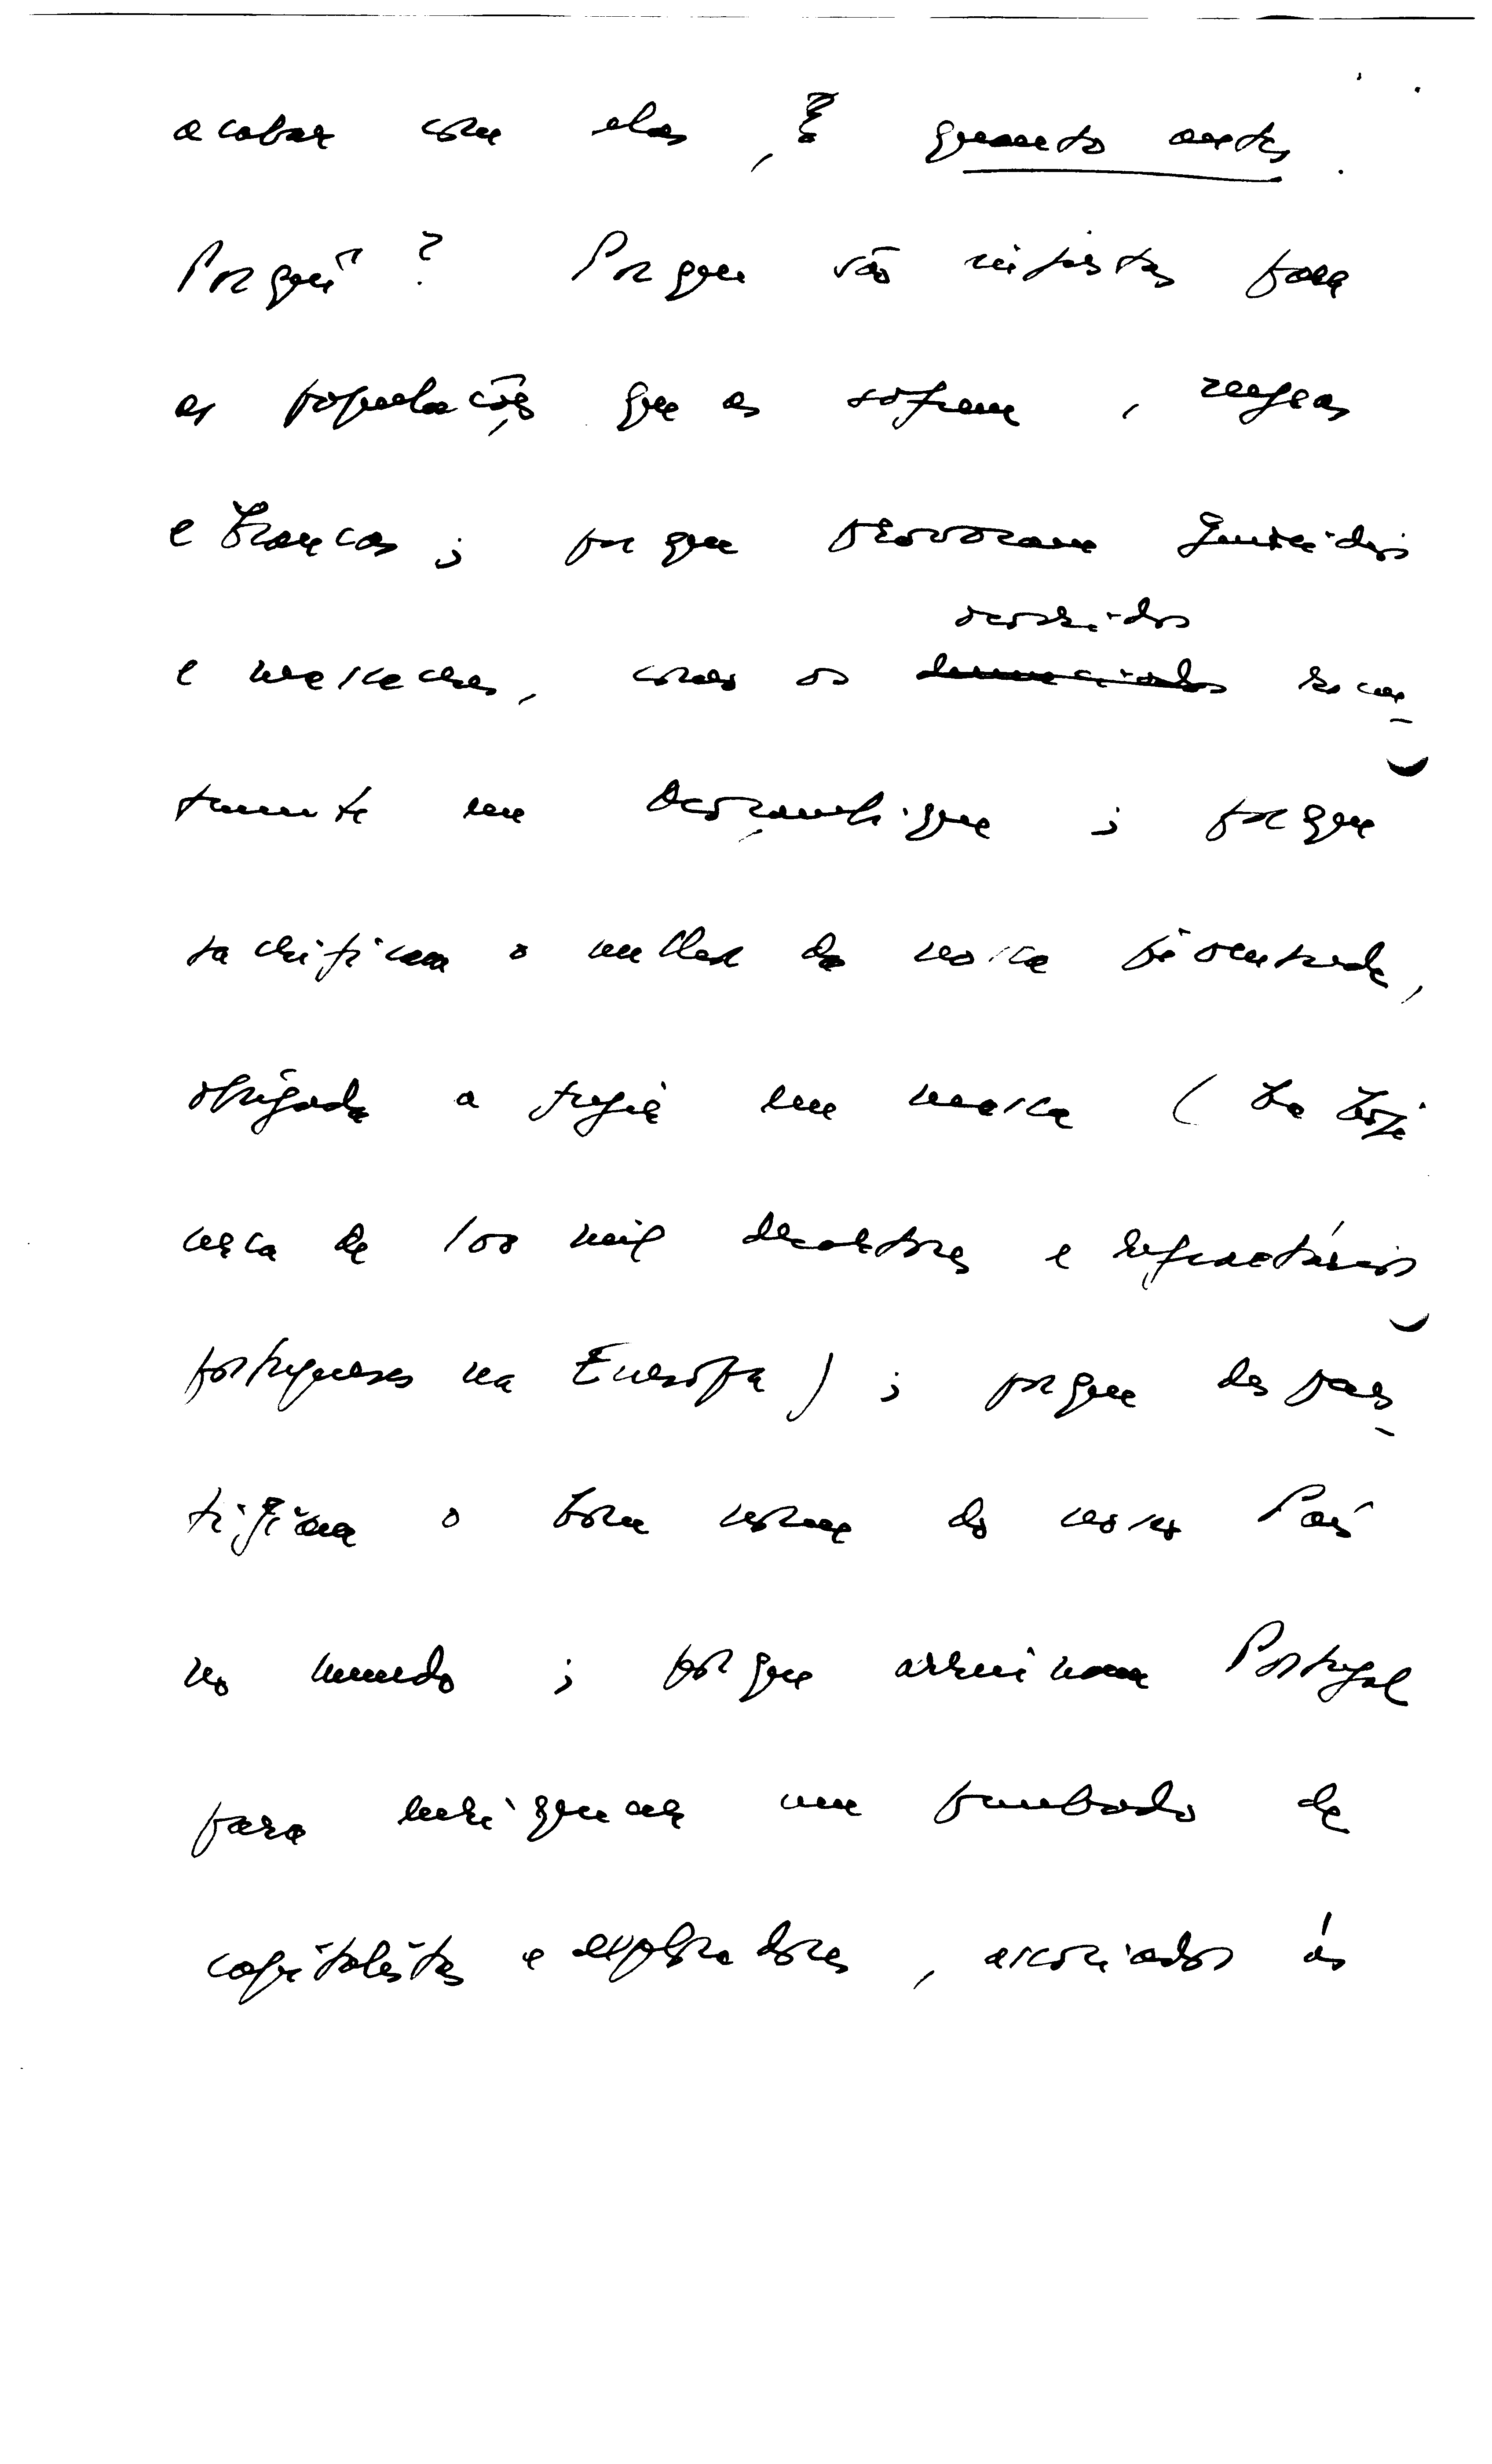 acabar com elas, quanto antes.
Porquê? Porque são injustas para
as populações que as sofrem, negras
e brancas; porque provocam genocídios
e massacres, como os ocorridos
denunciados recen-
temente em Moçambique; porque
sacrificam o melhor da nossa juventude,
obrigada a fugir em massa (há hoje
cerca de 100 mil desertores e refractários
portugueses na Europa); porque despres-
tigiam o bom nome do nosso País
no mundo; porque arruinam Portugal
para enriquecer um punhado de
capitalistas e exploradores, associados às